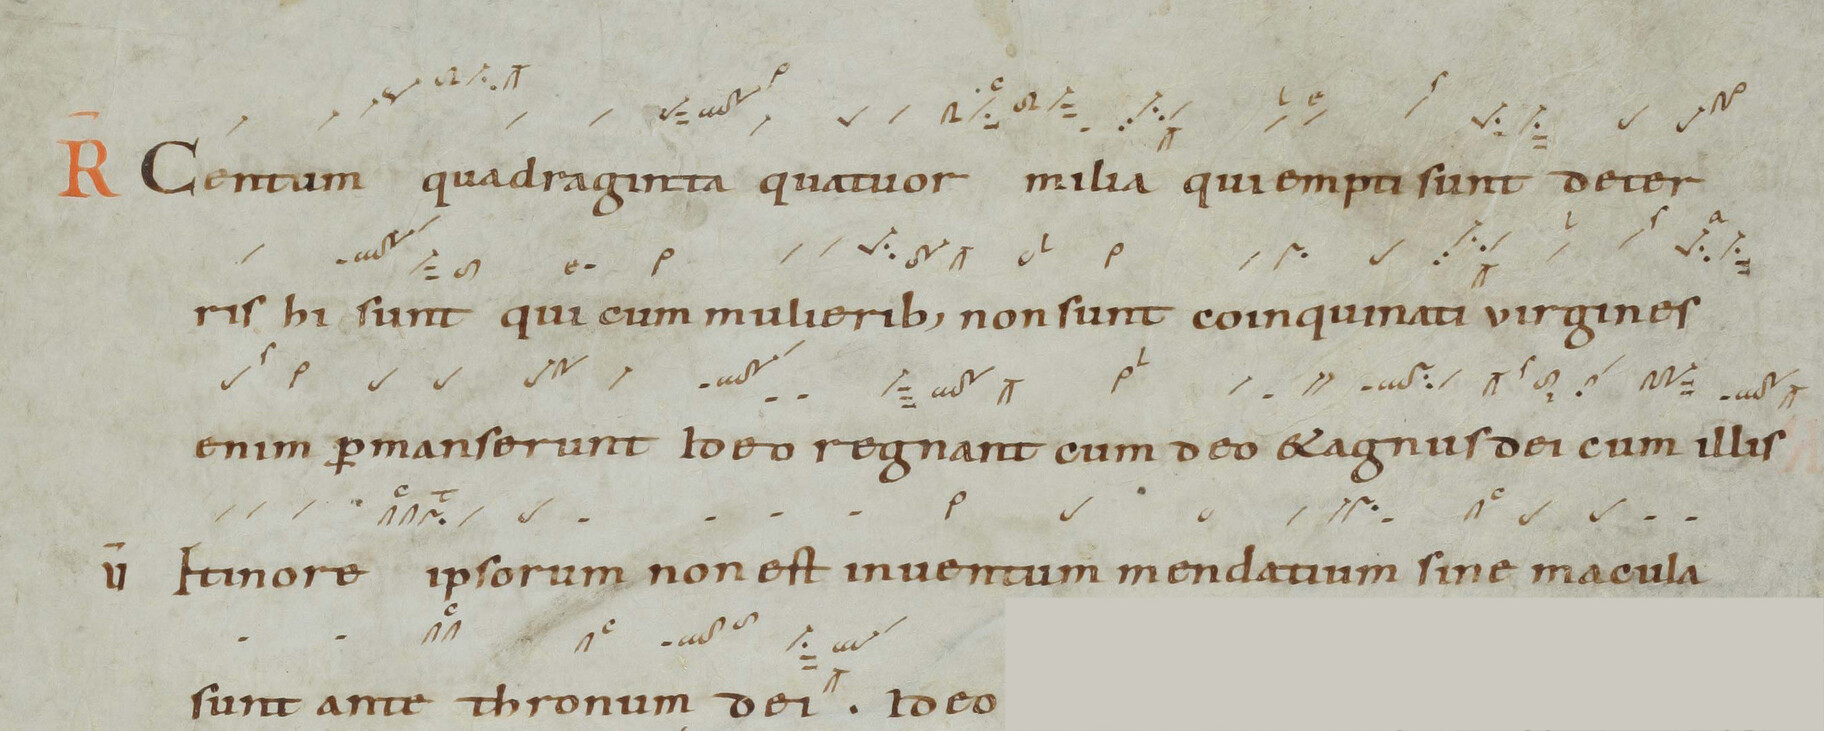 R̄ Centum quadraginta quatuor milia qui empti sunt deter
ris hi sunt qui cum mulierib; non sunt coinquinati virgines
enim ꝑmanserunt Ideo regnant cum deo & agnus dei cum illis
v̄ Itinore ipsorum non est inuentum mendatium sine macula
sunt ante thronum dei. Ideo